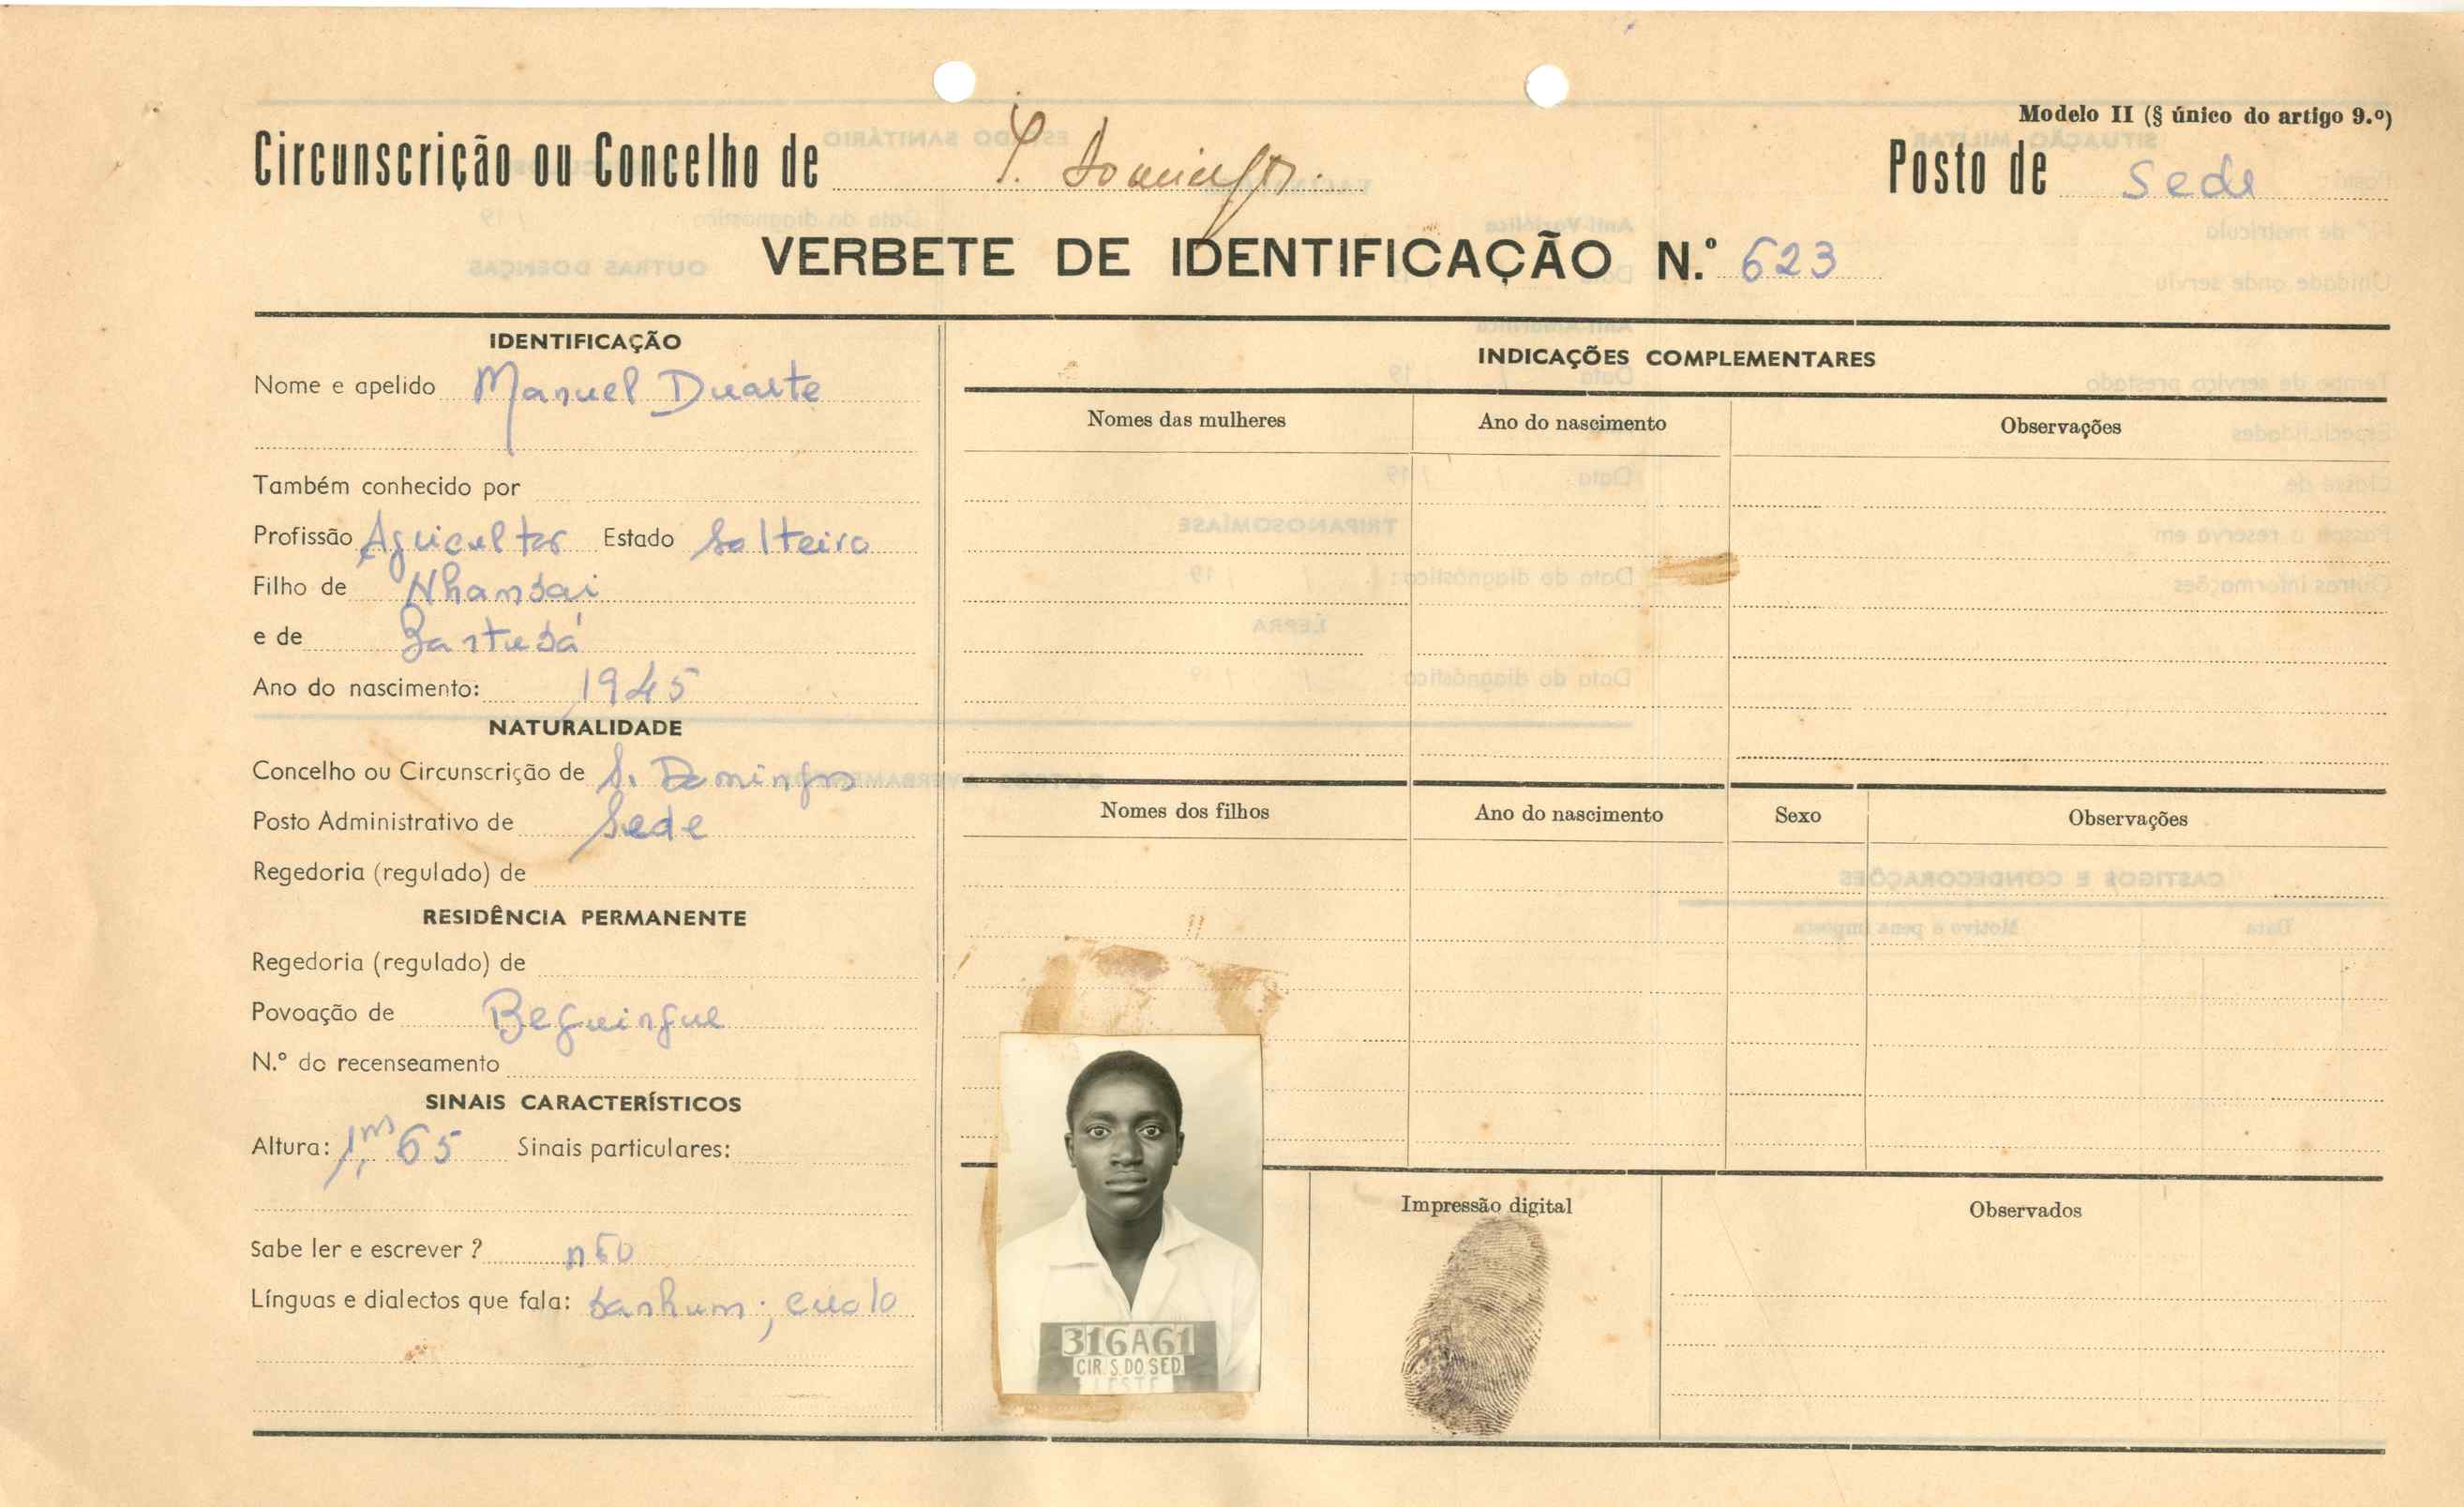 Modelo II (§ único do artigo 9.º)
Circunscrição ou Concelho de S. Domingos. Posto de Sede
VERBETE DE IDENTIFICAÇÃO N.º 623
IDENTIFICAÇÃO
Nome e apelido Manuel Duarte
Também conhecido por
Profissão Agricultor Estado Solteiro
Filho de
e de
Ano do nascimento: 1945
NATURALIDADE
Concelho ou Circunscrição de S. Domingos
Posto Administrativo de Sede
Regedoria (regulado) de
RESIDÊNCIA PERMANENTE
Regedoria (regulado) de
Povoação de Beguingue
N.º do recenseamento
SINAIS CARACTERÍSTICOS
Altura: 1,m65 Sinais particulares:
Sabe ler e escrever? não
Línguas e dialectos que fala: banhum; cuolo
INDICAÇÕES COMPLEMENTARES
Nomes das mulheres Ano do nascimento Observações
Nomes dos filhos Ano do nascimento Sexo Observações
316A61
CIR S.DO SED.
LESTE
Impressão digital
Observados